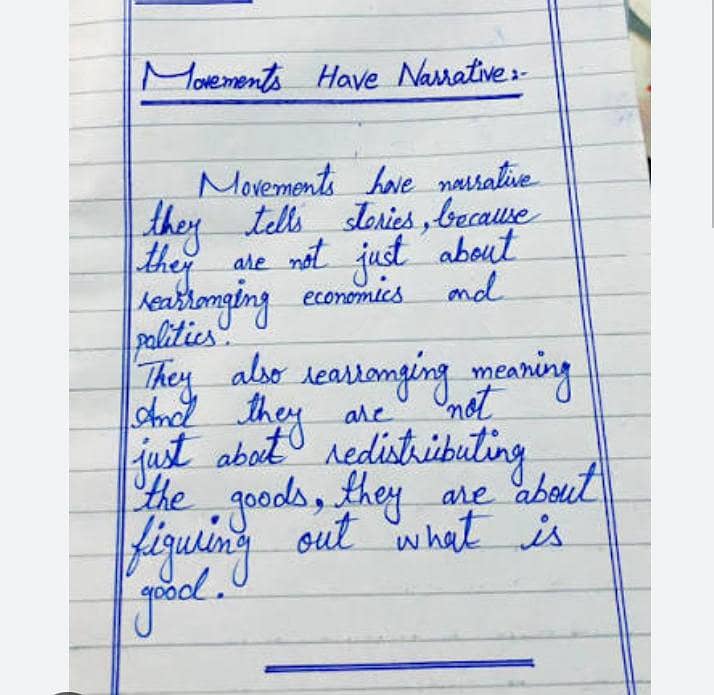 Movements Have Narrative :-
Movements have narrative
they tells stories, because
they are not just about
rearranging economics and
politics.
They also rearranging meaning
And they are not
just about redistributing
the goods, they are about
figuring out what is
good.